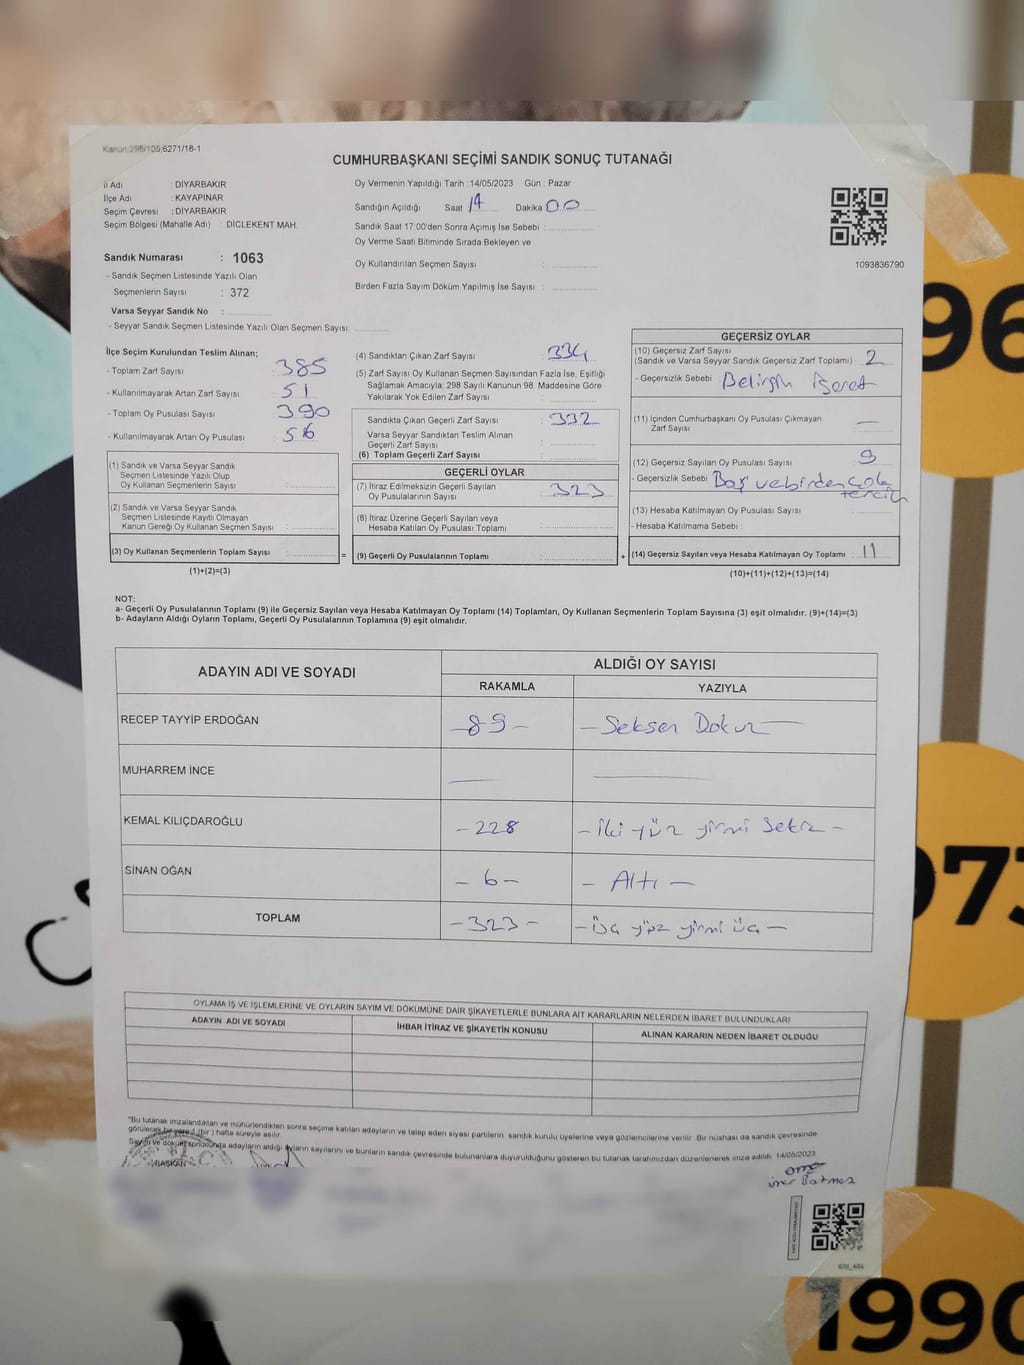 Kanun:298/105;6271/18-1
CUMHURBAŞKANI SEÇİMİ SANDIK SONUÇ TUTANAĞI
İl Adı : DİYARBAKIR
İlçe Adı : KAYAPINAR
Seçim Çevresi : DİYARBAKIR
Seçim Bölgesi (Mahalle Adı) : DİCLEKENT MAH.
Sandık Numarası : 1063
- Sandık Seçmen Listesinde Yazılı Olan
Seçmenlerin Sayısı : 372
Varsa Seyyar Sandık No :
- Seyyar Sandık Seçmen Listesinde Yazılı Olan Seçmen Sayısı:
Oy Vermenin Yapıldığı Tarih :14/05/2023 Gün : Pazar
Sandığın Açıldığı Saat 17 Dakika 00
Sandık Saat 17:00'den Sonra Açımış İse Sebebi :
Oy Verme Saati Bitiminde Sırada Bekleyen ve
Oy Kullandırılan Seçmen Sayısı :
Birden Fazla Sayım Döküm Yapılmış İse Sayısı :
1093836790
İlçe Seçim Kurulundan Teslim Alınan;
- Toplam Zarf Sayısı : 385
- Kullanılmayarak Artan Zarf Sayısı : 51
- Toplam Oy Pusulası Sayısı : 390
- Kullanılmayarak Artan Oy Pusulası : 56
(1) Sandık ve Varsa Seyyar Sandık
Seçmen Listesinde Yazılı Olup
Oy Kullanan Seçmenlerin Sayısı :
(2) Sandık ve Varsa Seyyar Sandık
Seçmen Listesinde Kayıtlı Olmayan
Kanun Gereği Oy Kullanan Seçmen Sayısı :
(3) Oy Kullanan Seçmenlerin Toplam Sayısı : =
(1)+(2)=(3)
(4) Sandıktan Çıkan Zarf Sayısı : 334
(5) Zarf Sayısı Oy Kullanan Seçmen Sayısından Fazla İse, Eşitliği
Sağlamak Amacıyla; 298 Sayılı Kanunun 98. Maddesine Göre
Yakılarak Yok Edilen Zarf Sayısı :
Sandıkta Çıkan Geçerli Zarf Sayısı : 332
Varsa Seyyar Sandıktan Teslim Alınan
Geçerli Zarf Sayısı :
(6) Toplam Geçerli Zarf Sayısı :
GEÇERLİ OYLAR
(7) İtiraz Edilmeksizin Geçerli Sayılan
Oy Pusulalarının Sayısı : 323
(8) İtiraz Üzerine Geçerli Sayılan veya
Hesaba Katılan Oy Pusulası Toplamı :
(9) Geçerli Oy Pusulalarının Toplamı : +
GEÇERSİZ OYLAR
(10) Geçersiz Zarf Sayısı
(Sandık ve Varsa Seyyar Sandık Geçersiz Zarf Toplamı) : 2
- Geçersizlik Sebebi : Belirgin İşaret
(11) İçinden Cumhurbaşkanı Oy Pusulası Çıkmayan
Zarf Sayısı : —
(12) Geçersiz Sayılan Oy Pusulası Sayısı : 9
- Geçersizlik Sebebi : Boş ve birden çok
tercih
(13) Hesaba Katılmayan Oy Pusulası Sayısı :
- Hesaba Katılmama Sebebi :
(14) Geçersiz Sayılan veya Hesaba Katılmayan Oy Toplamı : 11
(10)+(11)+(12)+(13)=(14)
NOT:
a- Geçerli Oy Pusulalarının Toplamı (9) ile Geçersiz Sayılan veya Hesaba Katılmayan Oy Toplamı (14) Toplamları, Oy Kullanan Seçmenlerin Toplam Sayısına (3) eşit olmalıdır. (9)+(14)=(3)
b- Adayların Aldığı Oyların Toplamı, Geçerli Oy Pusulalarının Toplamına (9) eşit olmalıdır.
ADAYIN ADI VE SOYADI ALDIĞI OY SAYISI
RAKAMLA YAZIYLA
RECEP TAYYİP ERDOĞAN -89- -Seksen Dokuz-
MUHARREM İNCE — —
KEMAL KILIÇDAROĞLU -228 -İki yüz yirmi Sekiz-
SİNAN OĞAN -6- -Altı-
TOPLAM -323- -Üç yüz yirmi üç-
OYLAMA İŞ VE İŞLEMLERİNE VE OYLARIN SAYIM VE DÖKÜMÜNE DAİR ŞİKAYETLERLE BUNLARA AİT KARARLARIN NELERDEN İBARET BULUNDUKLARI
ADAYIN ADI VE SOYADI İHBAR İTİRAZ VE ŞİKAYETİN KONUSU ALINAN KARARIN NEDEN İBARET OLDUĞU
*Bu tutanak imzalandıktan ve mühürlendikten sonra seçime katılan adayların ve talep eden siyasi partilerin sandık kurulu üyelerine veya gözlemcilerine verilir. Bir nüshası da sandık çevresinde
görülecek bir yere 1 (bir) hafta süreyle asılır.
Sayım ve döküm sonucunda adayların aldığı oyların sayılarını ve bunların sandık çevresinde bulunanlara duyurulduğunu gösteren bu tutanak tarafımızdan düzenlenerek imza edildi. 14/05/2023
BAŞKAN
96
973
1990